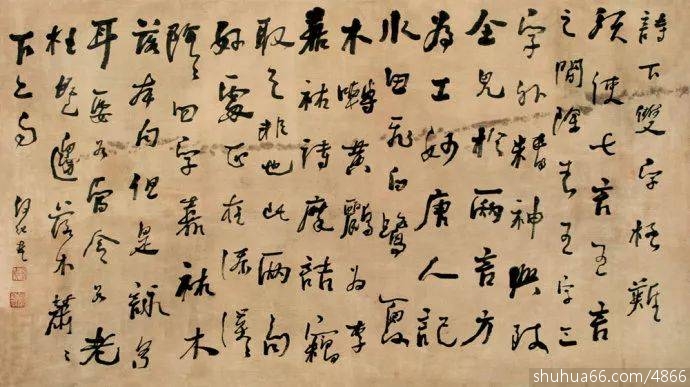 詩下雙字極難
須使七言五言
之間除去五字三
字外精神興致
全見於兩言方
為工妙唐人記
水田飛白鷺夏
木囀黃鸝為李
嘉祐詩摩詰竊
取之非也此兩句
好處正在添漠漠
陰陰四字嘉祐木
本句但是詠景
耳要當令如老
杜無邊落木蕭蕭
下之句
shuhua66.com/4866